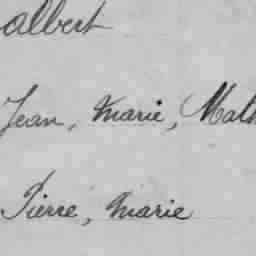 albert
Jean, Marie, Math
Pierre, Marie